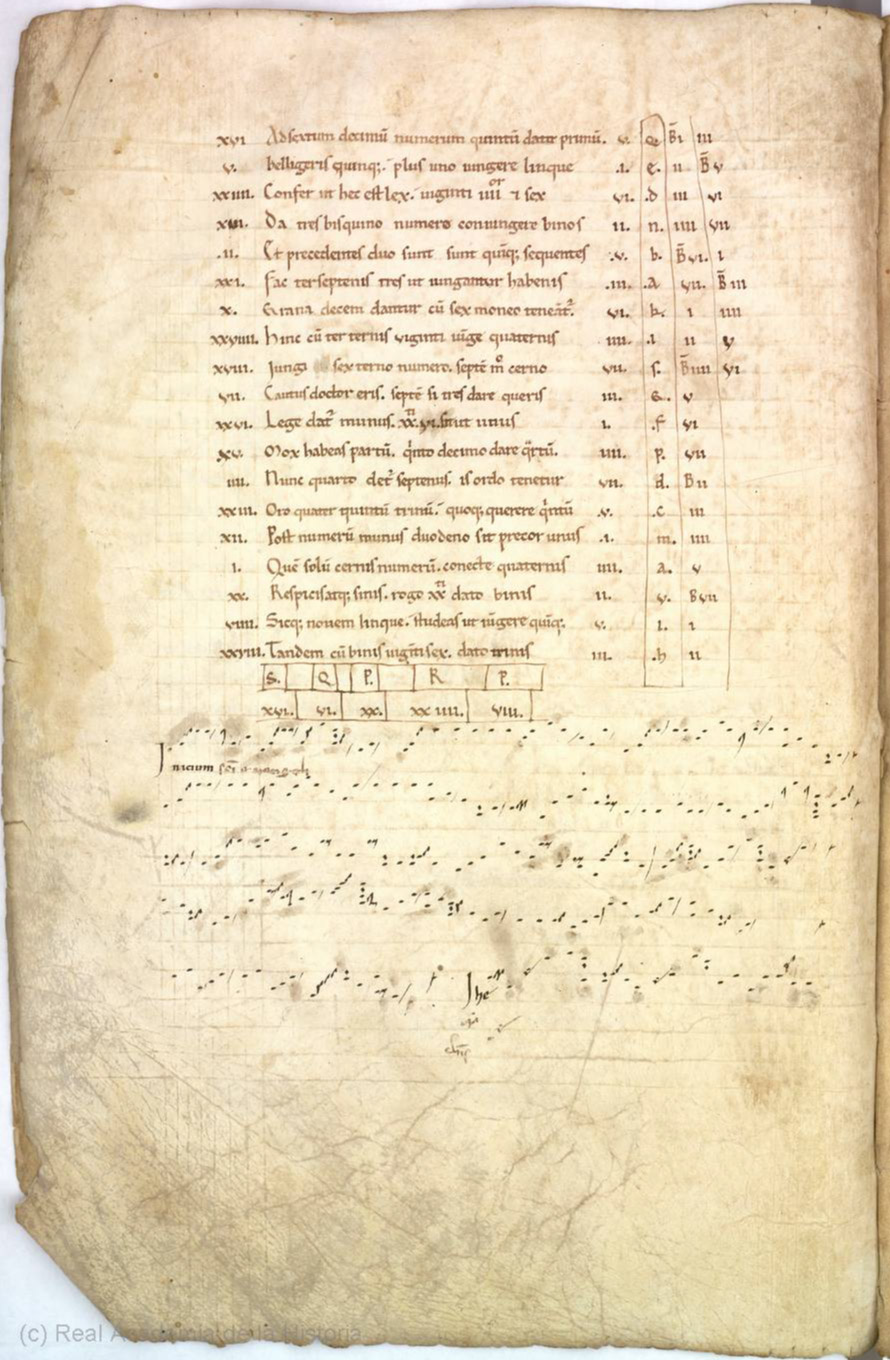 xvi Ad sextum decimū numerum quintū datur primū. v. Q B̄i iii
v. belligeris quinq;. plus uno iungere linque .i. e. ii B̄v
xxiiii. Confer ut hec est lex. uiginti iiiior & sex vi. .d iii vi
xiii. Da tres bisquino numero coniungere binos ii. n. iiii vii
.ii. Et precedentes duo sunt sunt quīq; sequentes .v. b. B̄vi. i
xxi. Fac ter septenis tres ut iungantur habenis .iii. .a vii. B̄iii
x. Grana decem dantur cū sex moneo vi. k. i iiii
xxviiii. hinc cū ter ternis viginti iūge quaternis iiii. .i ii v
xviii. Iungi sex terno numero. septē cerno vii. s. B̄iiii vi
vii. Cautus doctor eris. septē si tres dare queris iii. G. v
xxvi. Lege datr̄ munus. unus i. .f vi
xv. Mox habeas partū. q̇nto decimo dare iiii. p. vii
iiii. Nunc quarto detr̄ septenus. is ordo tenetur vii. d. Bii
xxiii. Oro quater quintū trinū. quoq; querere v. .c iii
xii. Post numerū munus duodeno sit precor unus .i. m. iiii
i. Quē solū cernis numerū. conecte quaternis iiii. a. v
xx. Respicis atq; sinis. rogo dato binis ii. v. Bvii
viiii. Sicq; nouem linque. studeas ut iūgere quīq; v. i. i
xxviii. Tandem cū binis uigīti sex. dato trinis iii. .h ii
S. Q P. R P.
xvi. vi. xx. xxiiii. viii.
Inicium sci
Ihe